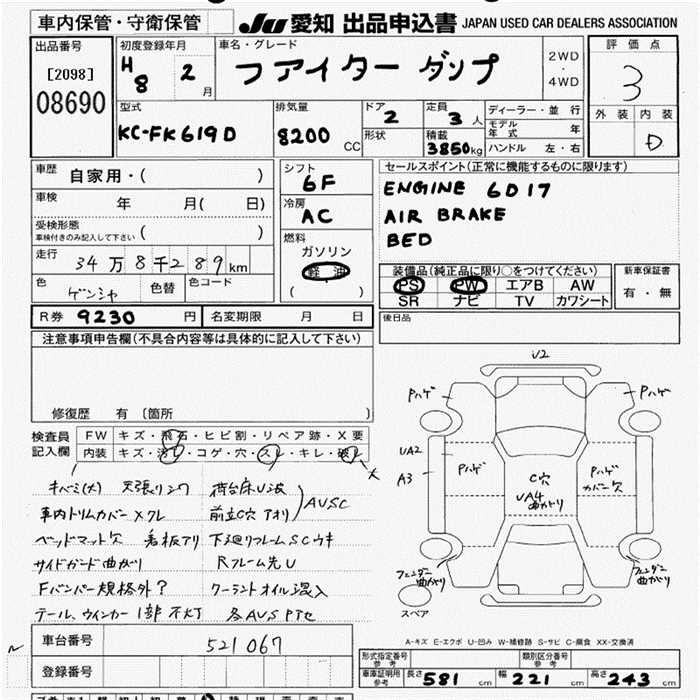 車内保管・守衛保管 JU 愛知 出品申込書 JAPAN USED CAR DEALERS ASSOCIATION
出品番号 初度登録年月 車名・グレード 評価点
[2098] H 8 2 月 ファイター ダンプ 2WD ・ 4WD 3
08690
外装 内装
D
型式 排気量 ドア 2 定員 3 人 ディーラー・並行
KC-FK619D 8200 CC 形状 積載 3850kg モデル年式 年
ハンドル 左・右
車歴 自家用・( ) シフト 6F セールスポイント(正常に機能するものに限ります)
車検 年 月( 日) 冷房 AC ENGINE 6D17
受検形態 AIR BRAKE
車検付きのみ記入して下さい ( ) 燃料 BED
走行 34万8千289km ガソリン
軽油
( )
装備品(純正品に限り○をつけてください) 新車保証書
PS PW エアB AW 有・無
SR ナビ TV カワシート
色 ゲンシャ 色替 色コード
R券 9230 円 名変期限 月 日 後日品
注意事項申告欄(不具合内容等は具体的に記入して下さい)
修復歴 有 〔箇所 〕
検査員記入欄 FW キズ・飛石・ヒビ割・リペア跡・X要
内装 キズ・汚レ・コゲ・穴・スレ・キレ・破レ
キバミ(大) 天張りシワ 荷台床U波
車内トリムカバーXクレ 前立C穴 アオリ AVSC
ベッドマット欠 看板アリ 下廻リフレームSCウキ
サイドガード曲がり Rフレーム先U
Fバンパー規格外? クーラントオイル混入
テール、ウインカー1部不灯 各AVSPTセ
U2
Pハゲ Pハゲ
UA2
A3 Pハゲ C穴 Pハゲ
UA4 カバー欠
曲がり
フェンダー曲がり フェンダー曲がり
スペア
A-キズ E-エクボ U-凹み W-補修跡 S-サビ C-腐食 XX-交換済
車台番号 521067
登録番号
形式指定番号 参考 類別区分番号 参考
車庫証明用 参考 長さ 581 cm 幅 221 cm 高さ 243 cm